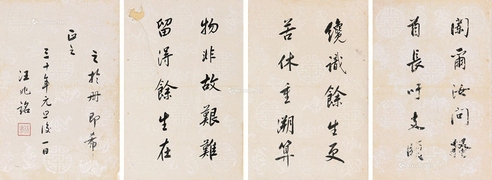 闌爾汝問搔
首長吁
纔識餘生更
苦休重溯算
物非故艱難
留得餘生在
之於冊即希
正之
三十年元旦後一日
汪兆銘